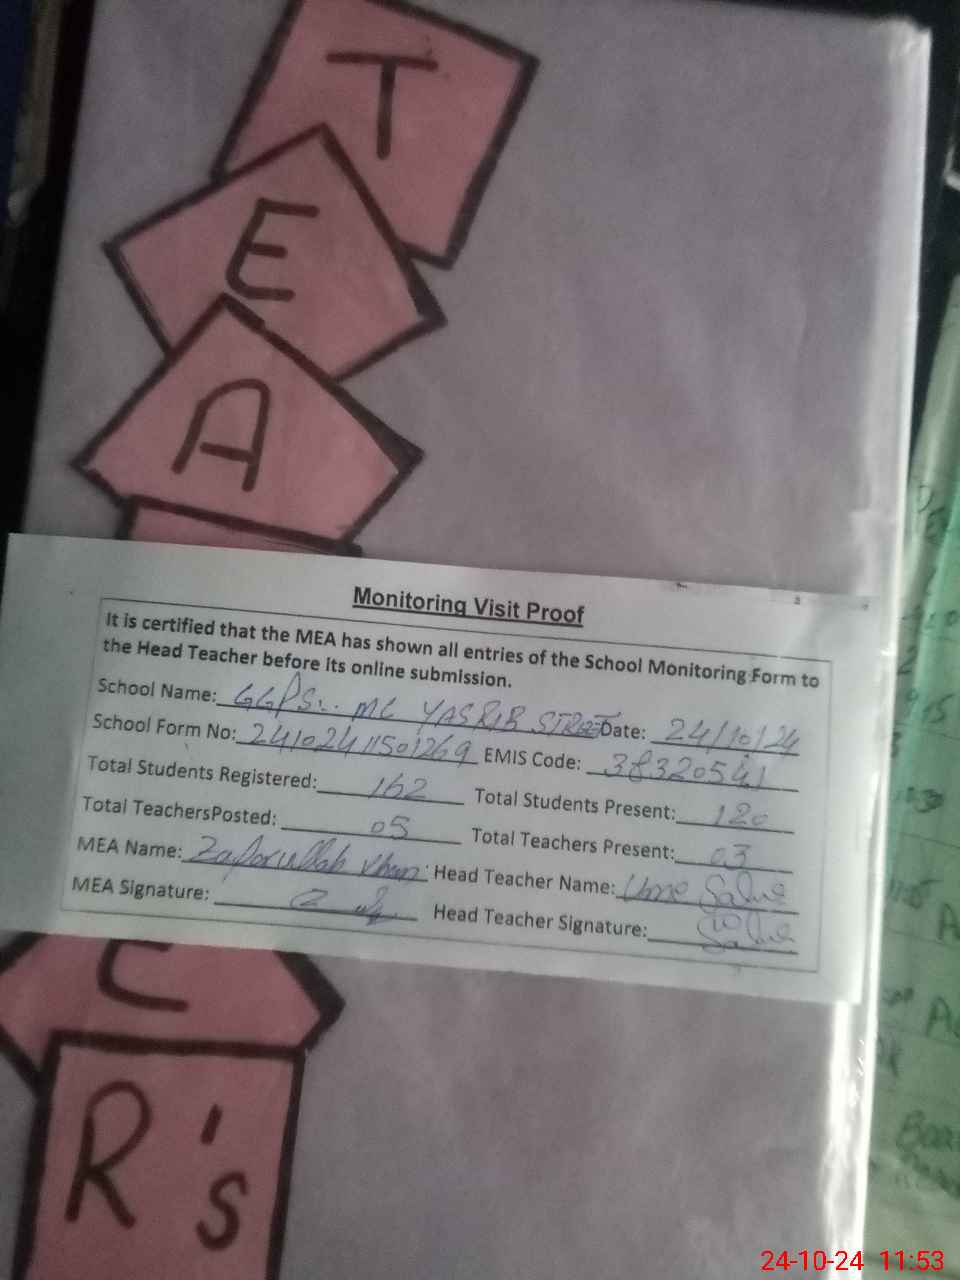 T
E
A
Monitoring Visit Proof
It is certified that the MEA has shown all entries of the School Monitoring Form to
the Head Teacher before its online submission.
School Name: GGPS MC YASRIB STREET Date: 24/10/24
School Form No: 24102411501269 EMIS Code: 38320541
Total Students Registered: 162 Total Students Present: 120
Total TeachersPosted: 05 Total Teachers Present: 03
MEA Name: Zafarullah Khan Head Teacher Name: Ume Salma
MEA Signature: Head Teacher Signature:
C
R's
24-10-24 11:53